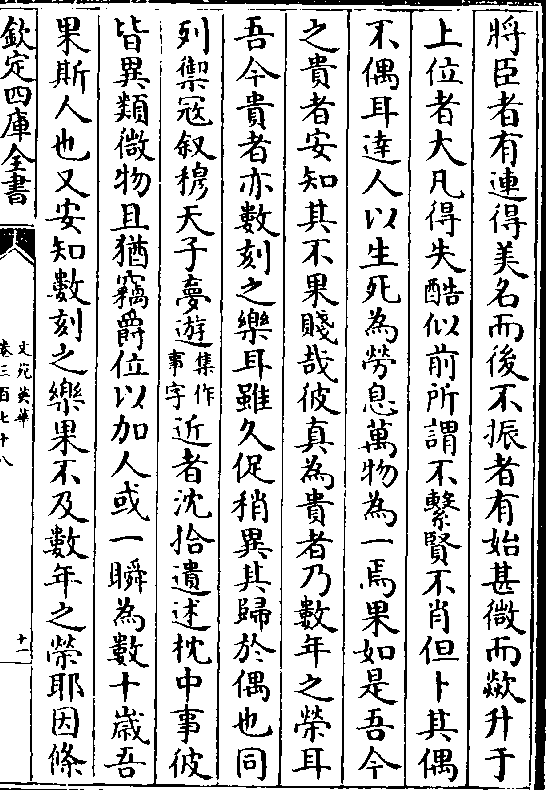 將臣者有連得美名而後不振者有始甚微而歘升于
上位者大凡得失酷似前所謂不繫賢不肖但卜其偶
不偶耳達人以生死為勞息萬物為一焉果如是吾今
之貴者安知其不果賤哉彼真為貴者乃數年之榮耳
吾今貴者亦數刻之樂耳雖久促稍異其歸於偶也同
列禦冦叙穆天子夢遊集作事字近者沈拾遺述枕中事彼
皆異類微物且猶竊爵位以加人或一瞬為數十歲吾
果斯人也又安知數刻之樂果不及數年之榮耶因條
欽定四庫全書
文苑英華
卷三百七十八
十一